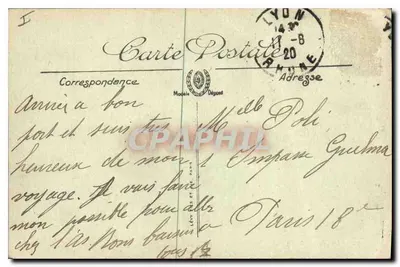 I
LYON
11-8
20
RHONE
Carte Postale
Correspondance
Adresse
Modèle Déposé
Arrivée a bon
port et suis très
heureux de mon
voyage. Je vais faire
mon possible pour aller
chez Nous baisers
tous
Melle Poli
1 Impasse Guelma
Paris 18e
CPARAMA